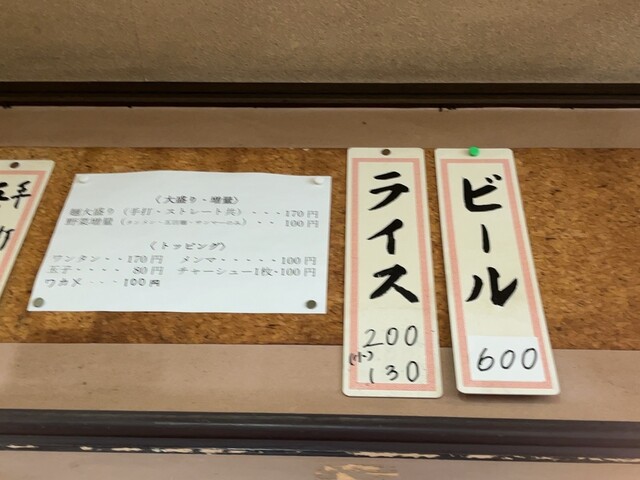 手打
〈大盛り・増量〉
麺大盛り（手打・ストレート共）・・・170円
野菜増量（タンメン・五目麺・サンマーのみ）・・100円
〈トッピング〉
ワンタン・・170円 メンマ・・・・・100円
玉子・・・・80円 チャーシュー1枚・100円
ワカメ・・・100円
ライス
200
(小)
130
ビール
600